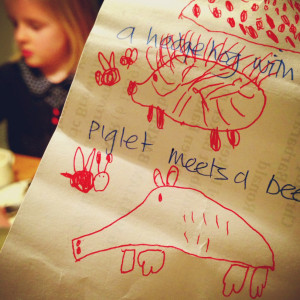 a hodgehog with
piglet meets a bee